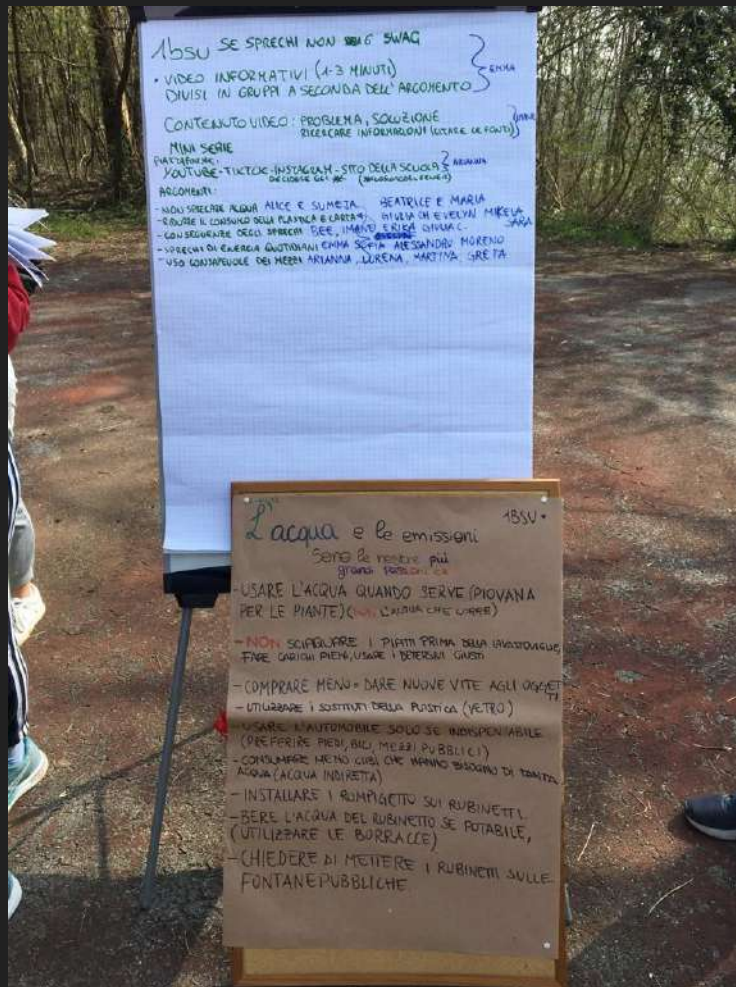 1bsu SE SPRECHI NON 6 SWAG
• VIDEO INFORMATIVI (1-3 MINUTI)
DIVISI IN GRUPPI A SECONDA DELL'ARGOMENTO
EMMA
CONTENUTO VIDEO: PROBLEMA, SOLUZIONE
RICERCARE INFORMAZIONI (CITARE LE FONTI)
MINI SERIE
PIATTAFORME:
YOUTUBE-TIKTOK-INSTAGRAM-SITO DELLA SCUOLA
ARIANNA
ARGOMENTI:
- NON SPRECARE ACQUA ALICE E SUMEJA BEATRICE E MARIA
- RIDURRE IL CONSUMO DELLA PLASTICA E CARTA GIULIA CH EVELYN MIKELA
- CONSEGUENZE DEGLI SPRECHI BEE, IMANE ERIKA GIULIA C. SARA
- SPRECHI DI ENERGIA QUOTIDIANI EMMA SOFIA ALESSANDRO MORENO
- USO CONSAPEVOLE DEI MEZZI ARIANNA, LORENA, MARTINA GRETA
L'acqua e le emissioni
1BSU
sono le nostre più
grandi
- USARE L'ACQUA QUANDO SERVE (PIOVANA
PER LE PIANTE) ( L'ACQUA CHE CORRE)
- NON SCIAQUARE I PIATTI PRIMA DELLA LAVASTOVIGLIE,
FARE CARICHI PIENI, USARE I DETERSIVI GIUSTI
- COMPRARE MENO = DARE NUOVE VITE AGLI OGGETTI
- UTILIZZARE I SOSTITUTI DELLA PLASTICA (VETRO)
- USARE L'AUTOMOBILE SOLO SE INDISPENSABILE
(PREFERIRE PIEDI, BICI, MEZZI PUBBLICI)
- CONSUMARE MENO CIBI CHE HANNO BISOGNO DI TANTA
ACQUA (ACQUA INDIRETTA)
- INSTALLARE I ROMPIGETTO SUI RUBINETTI.
- BERE L'ACQUA DEL RUBINETTO SE POTABILE,
(UTILIZZARE LE BORRACCE)
- CHIEDERE DI METTERE I RUBINETTI SULLE
FONTANE PUBBLICHE.